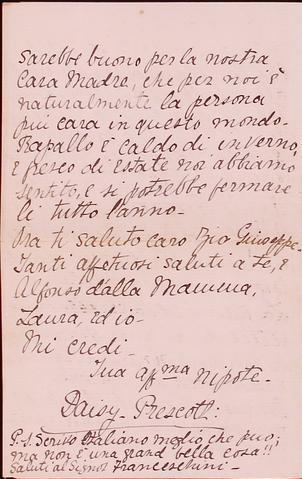 sarebbe buono per la nostra
cara Madre, che per noi è
naturalmente la persona
più cara in questo mondo-
Rapallo è caldo di inverno,
e fresco di Estate noi abbiamo
sentito, e si potrebbe fermare
li tutto l'anno-
Ora ti saluto caro Zio Giuseppe-
Tanti affetuosi saluti a te, e
Alfonso dalla Mamma,
Laura, ed io-
Mi credi-
Tua affma nipote-
Daisy Prescott:
P.S. Scritto Italiano meglio che può;
ma non è una grand' bella cosa!!
Saluti al Signor Franceschini-